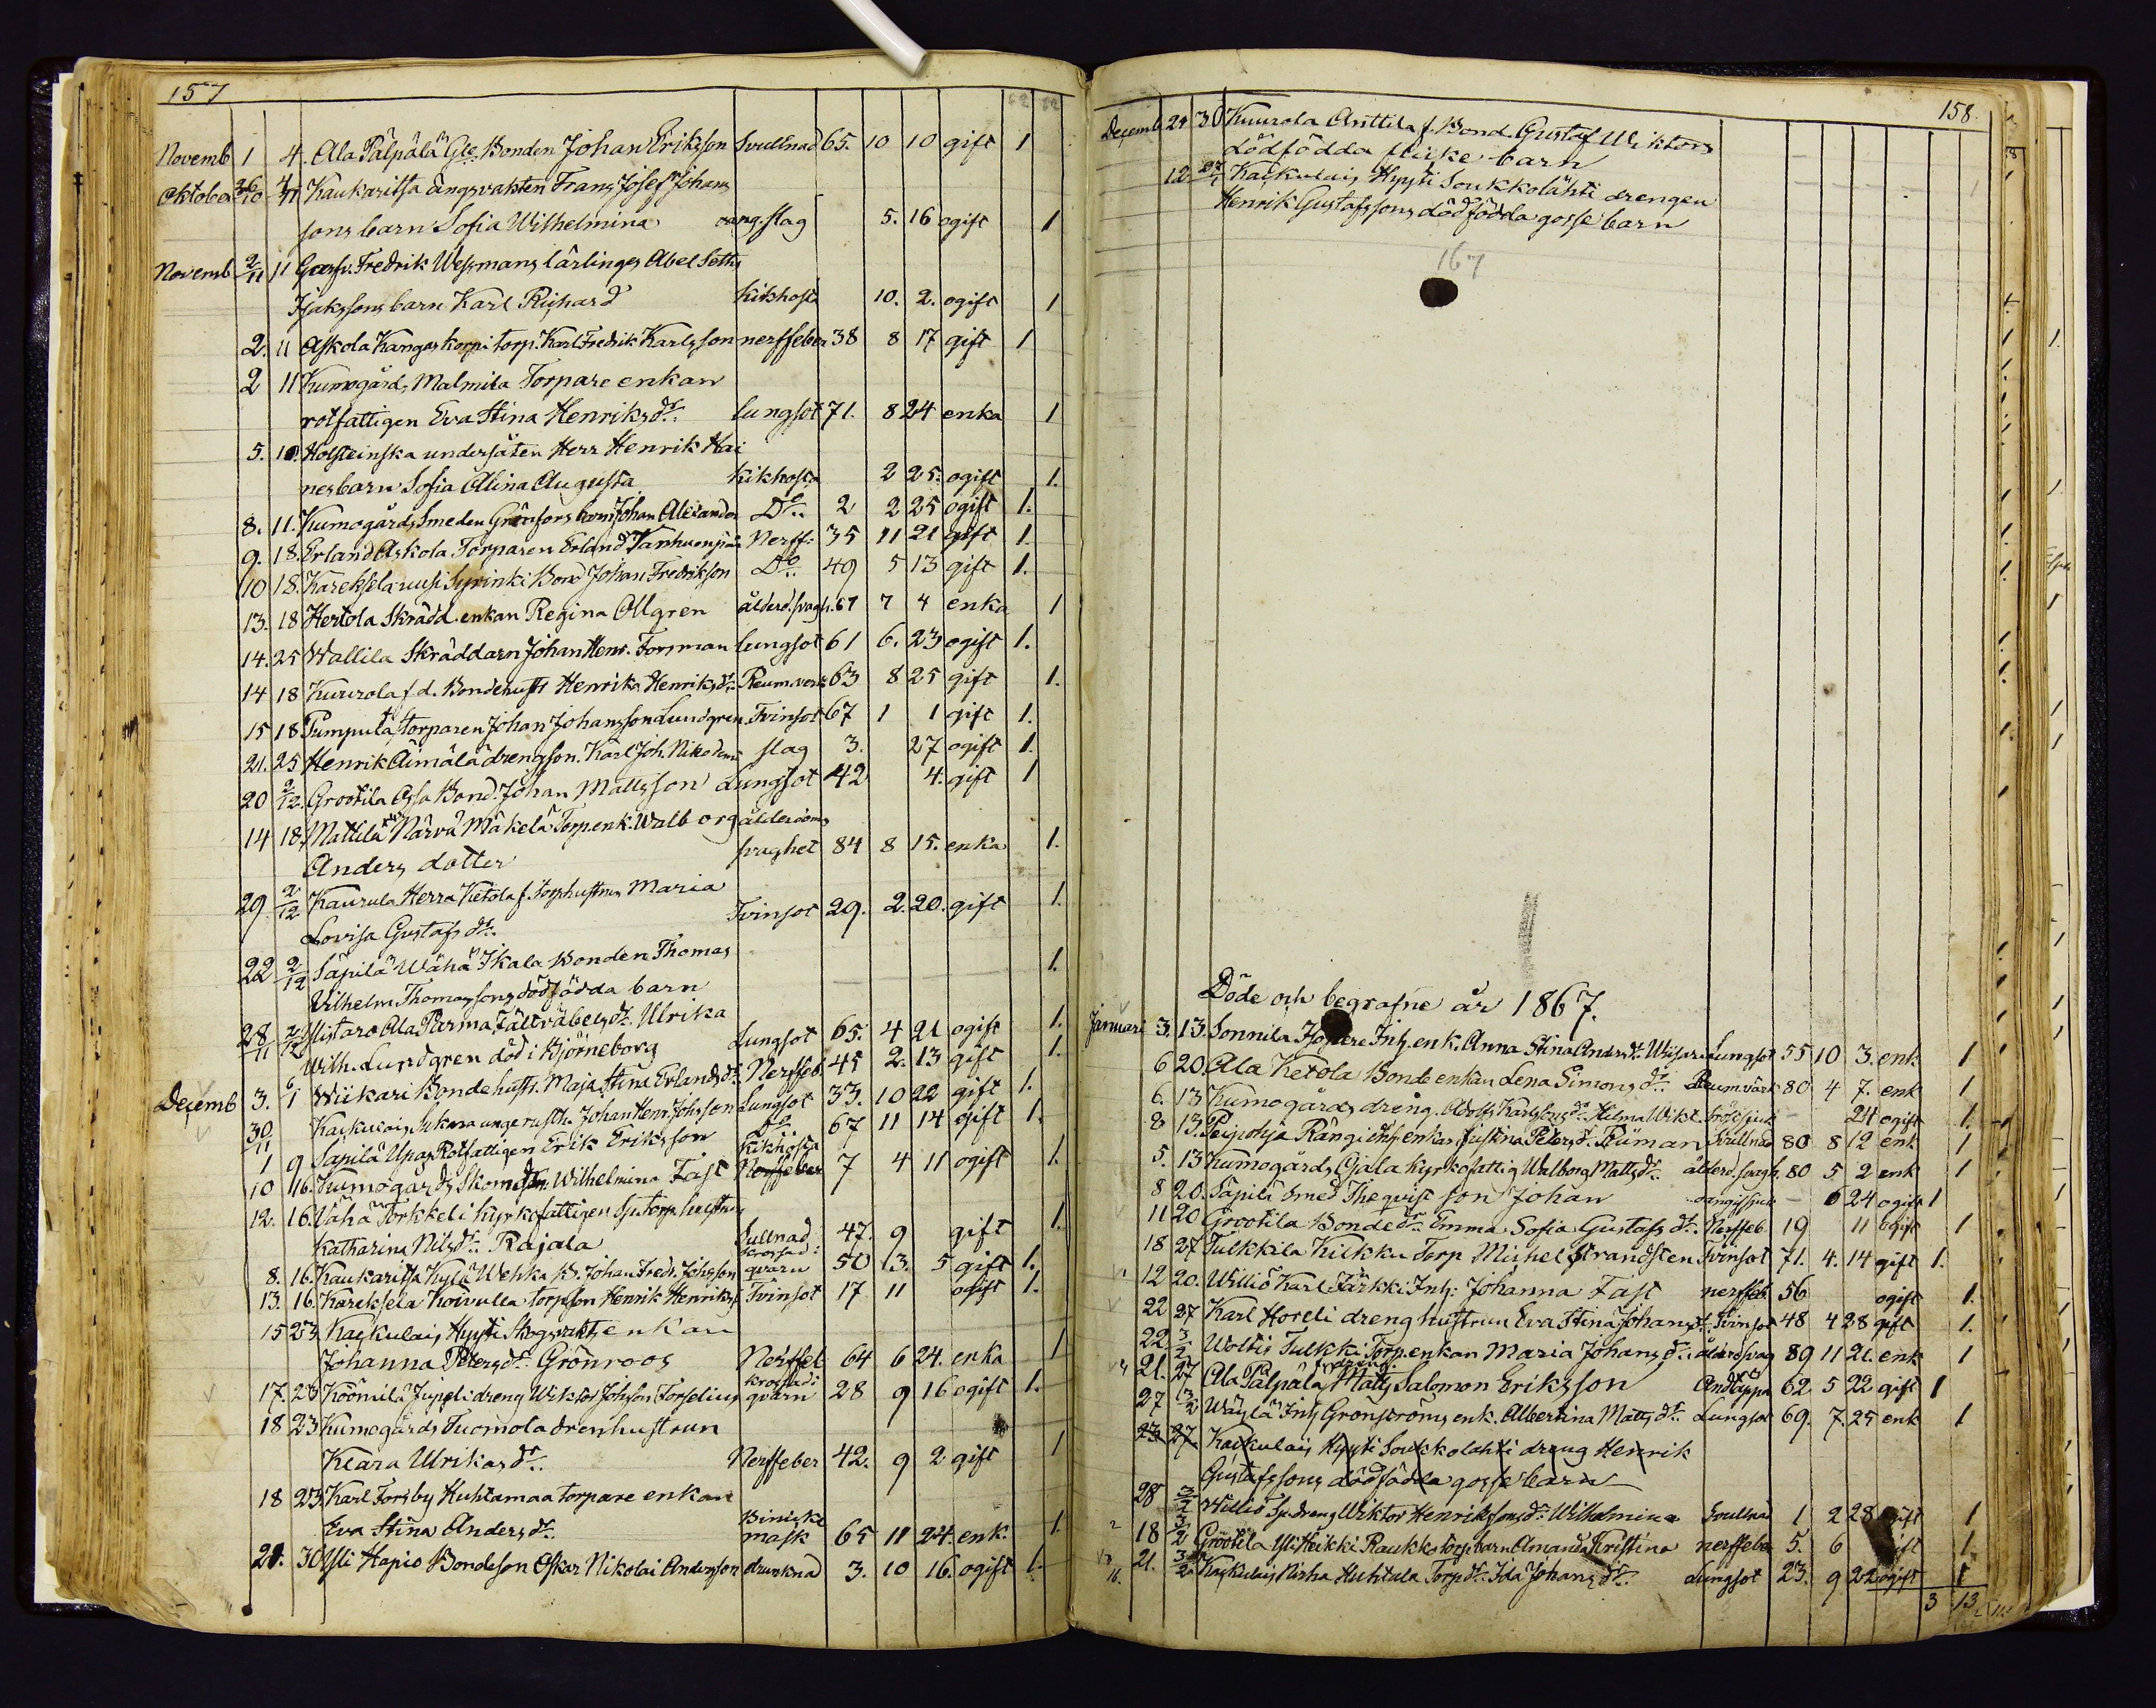 157
Novemb 1 4. Ala Pälpälä Gle. Bonden Johan Eriksson Svullnad 65. 10 10 gift 1
Oktober 26/10 4/11 Kaukaritsa ängsvakten Frans Josef Johans
sons barn Sofia Wilhelmina slag 5. 16 ogift 1
Novemb 2/11 11 Garfv. Fredrik Wessmans lärlinges Abel Seths
Isakssons barn Karl Richard kikhosta 10. 2. ogift 1
2. 11 Askola Kangaskorpi torp. Karl Fredrik Karlsson nerffeber 38 8 17 gift 1
2 11 Kumogårds Malmila Torpare enkan
rotfattigen Eva Stina Henriksdr. lungsot 71. 8 24 enka 1
5. 10. Holsteinska undersåten Herr Henrik Hai
nes barn Sofia Alina Augusta kikhosta 2 25. ogift 1.
8. 11. Kumogårds Smeden Grönfors barn Johan Alexander Do. 2 2 25 ogift 1.
9. 18. Erland Askola Torparen Erland Vanhuonpää Nerff. 35 11 21 gift 1.
10 18. Kareksela uusi Syrinki Bond Johan Fredrikson Do. 49 5 13 gift 1.
13. 18 Hertola Skrädd. enkan Regina Allgren ålderd. svagh. 67 7 4 enka 1
14. 25 Wallila Skräddarn Johan Henr. Forsman lungsot 61 6. 23 ogift 1.
14 18 Kuurola f.d. Bondehustr Henrika Henriksdr. Reum. verk 63 8 25 gift 1.
15 18 Pumpula Storparen Johan Johansson Lundgren Tvinsot 67 1 1 gift 1.
21. 25 Henrik Äimälä drengson. Karl Joh. Nikodemus slag 3. 27 ogift 1.
20 2/12. Grootila Ossa Bond. Johan Mattsson Lungsot 42 4. gift 1
14 18. Mattila Närvä Mäkelä Torp. enk. Walborg ålderdoms
Anders dotter svaghet 84 8 15. enka 1.
29 2/12 Kaurula Herra Ketola f. Torp hustrun Maria
Lovisa Gustafs dr. Tvinsot 29. 2. 20. gift 1.
22 2/12 Säpilä Wähä Ikala Bonden Thomas
Vilhelm Thomassons dödfödda barn 1.
28/11 2/12 Ylistaro Ala Parma Fältväbels dr. Ulrika
Wilh. Lundgren död i Björneborg Lungsot 65. 4 21 ogift 1.
Decemb 3. 6/1 Wiikari Bonde hustr. Maja Stina Erlandsdr. Nerffeb. 45 2. 13 gift 1.
30/11 Kaskulais unge rusth. Johan Henr. Johsson Lungsot 33. 10 22 gift 1.
1 9 Säpilä Upas Rotfattigen Erik Eriksson Do 67 11 14 gift 1.
10 16. Kumogårds Skom. dr. Wilhelmina Fast Kikhosta Nerffeber 7 4 11 ogift 1.
12. 16. Vähä Torkkeli kyrkofattigen Sytorp. hustrun
Katharina Nilsdr. Rajala Sullnad 47. 9 gift 1.
8. 16. Kaukaritsa Kylä Wehka B. Johan Fredr. Johsson krossad i qvarn 50 3. 5 gift 1.
13. 16. Kareksela Koivulla torpson Henrik Henriks. Tvinsot 17 11 ogift 1.
15 23. Kaskulais Hyyti Skogvakts enkan
Johanna Petersdr. Grönroos Nerffeb 64 6 24. enka 1
17. 23 Köömilä Jupeli dreng Wiktor Johsson Forselius krossad i qvarn 28 9 16 ogift 1.
18 23 Kumogårds Tuomola drenhustrun
Klara Ulrikas dr. Nerffeber 42. 9 2 gift 1
18 23. Karl Forsby Huhtamaa torpare enkan
Eva Stina Anders dr. Binicke mask 65 11 24. enk. 1.
21. 30 Ylli Hapio Bondeson Oskar Nikolai Andersson drunknad 3. 10 16. ogift 1.
158.
Decemb 24 30 Kuurola Anttila f. Bond. Gustaf Wiktors
dödfödda flicke barn
12 27/1 Kaskulais Hyyti Soukkolahti drengen
Henrik Gustafssons dödfödda gosse barn
167
Döde och begrafne år 1867.
Januari 3. 13. Sonnila Inh. enk. Anna Stina Anders dr. Lungsot 55 10 3. enk 1
6 20 Ala Ketola Bonde enkan Lena Simons dr. Reum. värk 80 4 7. enk 1
6. 13 Kumogårds dreng. Adolf Karlssons dr. Hilma Wikt. bröstsjuk 24 ogift 1.
8 13 Peipohja Rängi enkan Justina Peters d. Svullnad 80 8 12 enk 1
5. 13 Kumogårds Ojala kyrkofattig Walborg Matts dr. ålderd. svagh. 80 5 2 enk 1
8 20. Säpilä Smed Theqvist son Johan oangifven 6 24 ogift 1
11 20 Grootila Bonde dr. Emma Sofia Gustafs dr. Nerffeb. 19 11 ogift 1
18 27 Tulkkila Kiikku Torp Michel Strandsten Tvinsot 71. 4. 14 gift 1.
12 20. Williö Karl Tärkki Inh: Johanna Fast nerffeb 56 ogift 1.
22 27 Karl Horeli dreng hustrun Eva Stina Johans dr. Tvinsot 48 4 28 gift 1.
22 3/2 Woltis Tulkki Torp. enkan Maria Johans dr. ålderd. svag 89 11 21. enk 1
21. 27 Ala Pälpälä dreng. Matts Salomon Eriksson Andtäppa 62 5 22 gift 1
27 3/2 Wäylä Inh Grönströms enk. Albertina Matts dr. Lungsot 69. 7. 25 enk 1
23 27 Kaskulais Hyyti Soukkolahti dreng Henrik
Gustafssons dödfödda gosse barn
28 3/2 Williö Sydreng Wiktor Henrikssons dr. Wilhelmina Svullnad 1 2 28 ogift 1
18 3/2 Grootila Yli Heikki Raukko torp. barn Amanda Kristina nerffeber 5. 6 1.
21. 3/2 Kaskulais Pirha Huhtala Torp dr. Ida Johans dr. Lungsot 23. 9 22 ogift 1
3 13